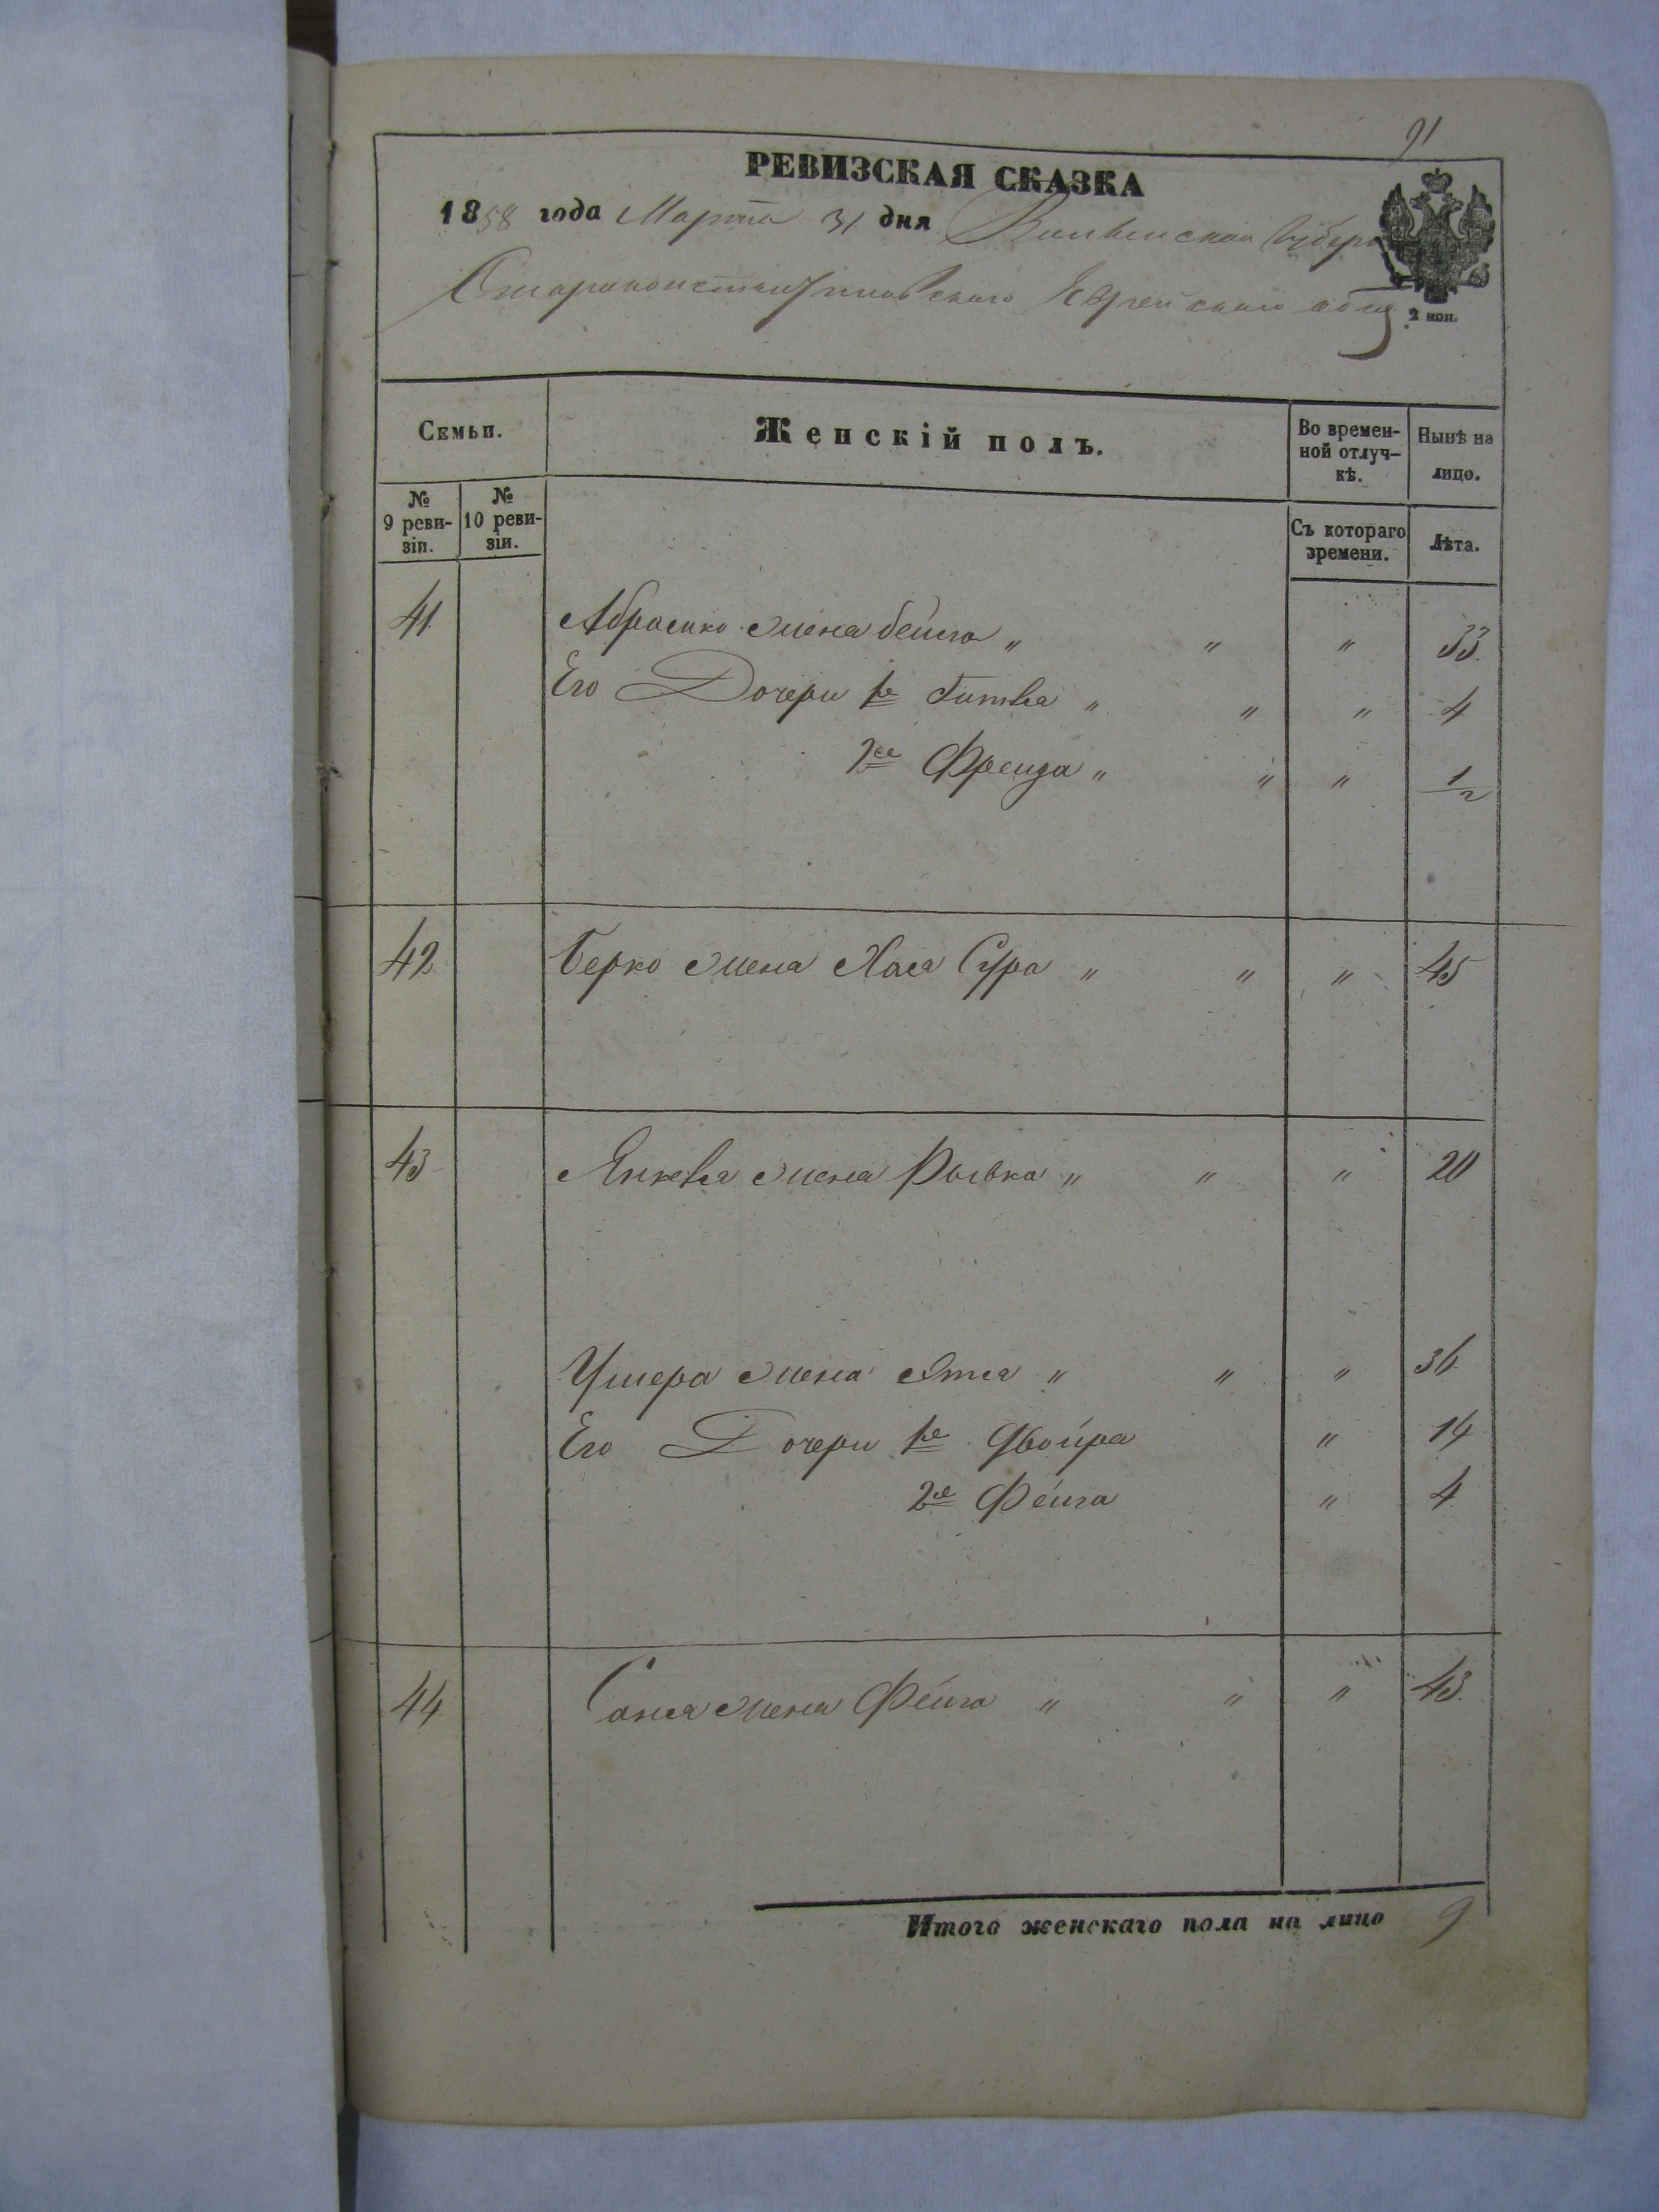 91
РЕВИЗСКАЯ СКАЗКА
1858 года Марта 31 дня Волынской Губерн
Староконстантиновскаго Еврейскаго общ
2 коп.
Семьи.
Женскій полъ.
Во времен-
ной отлуч-
кѣ.
Нынѣ на
лицо.
№
9 реви-
зіи.
№
10 реви-
зіи.
Съ котораго
времени.
Лѣта.
41 Абрамко жена бейла " " " 33.
Его Дочери 1я Гитля " " " 4
2ая Фрейда " " " 1/2
42 Берко жена Хая Сура " " " 45
43 Янкеля жена Рывка " " " 20
Ушера жена Этя " " " 36
Его Дочери 1я Двойра " 14
2я Фейга " 4
44 жена Фейга " " " 43.
Итого женскаго пола на лицо 9